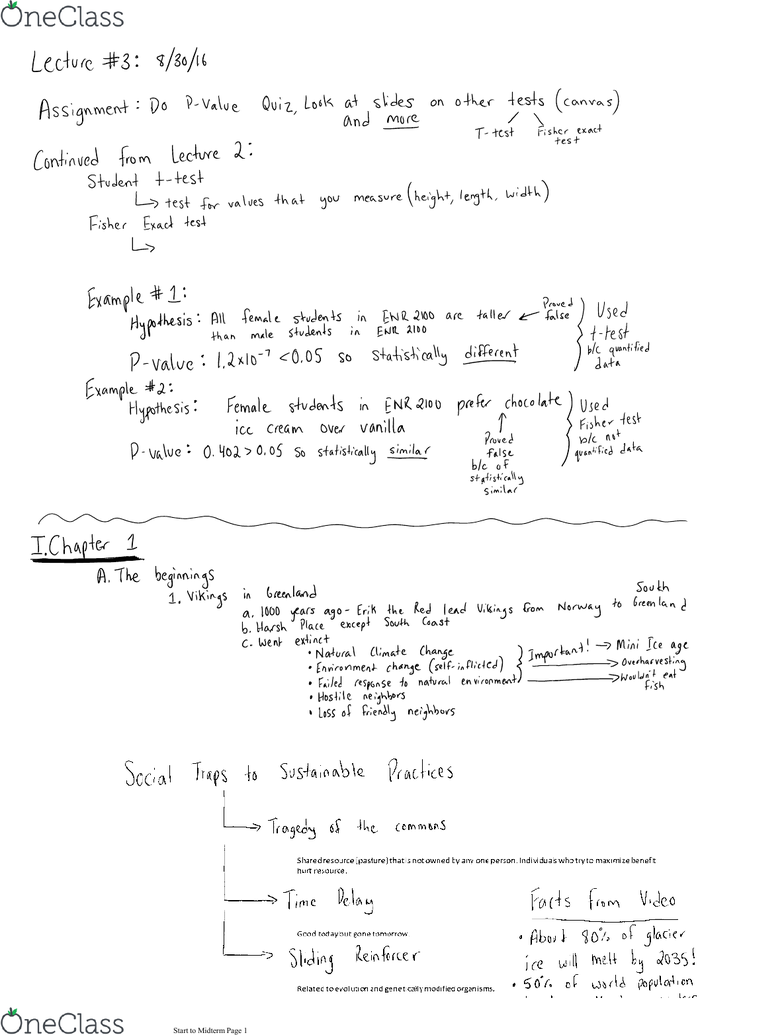 OneClass
Lecture #3: 8/30/16
Assignment: Do P-Value Quiz, Look at slides on other tests (canvas)
and more
T-test Fisher exact
test
Continued from Lecture 2:
Student t-test
test for values that you measure (height, length, width)
Fisher Exact test
Example #1:
Hypothesis: All female students in ENR 2100 are taller
than male students in ENR 2100
Proved
false
P-value: 1.2x10⁻⁷ <0.05 so statistically different
Used
t-test
b/c quantified
data
Example #2:
Hypothesis: Female students in ENR 2100 prefer chocolate
ice cream over vanilla
P-value: 0.402 > 0.05 so statistically similar
Proved
false
b/c of
statistically
similar
Used
Fisher test
b/c not
quantified data
I. Chapter 1
A. The beginnings
1. Vikings in Greenland
a. 1000 years ago - Erik the Red lead Vikings from Norway to South Greenland
b. Harsh Place except South Coast
c. Went extinct
• Natural Climate Change
• Environment change (self-inflicted)
• Failed response to natural environment
• Hostile neighbors
• Loss of friendly neighbors
Important! → Mini Ice age
→ Overharvesting
→ Wouldn't eat
fish
Social Traps to Sustainable Practices
Tragedy of the commons
Shared resource (pasture) that is not owned by any one person. Individuals who try to maximize benefit
hurt resource.
Time Delay
Good today but gone tomorrow
Sliding Reinforcer
Related to evolution and genetically modified organisms.
Facts From Video
• About 80% of glacier
ice will melt by 2035!
• 50% of world population
OneClass
Start to Midterm Page 1